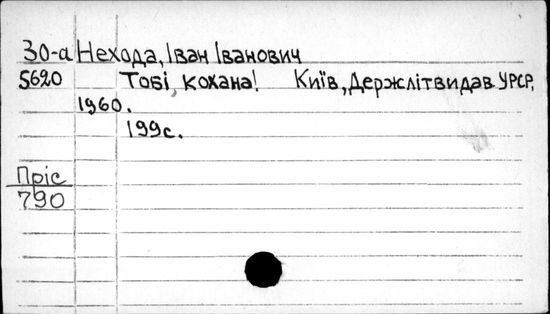 30-а Нехода, Іван Іванович
5620 Тобі, кохана! Київ, Держлітвидав УРСР,
1960.
199с.
Пріс
790